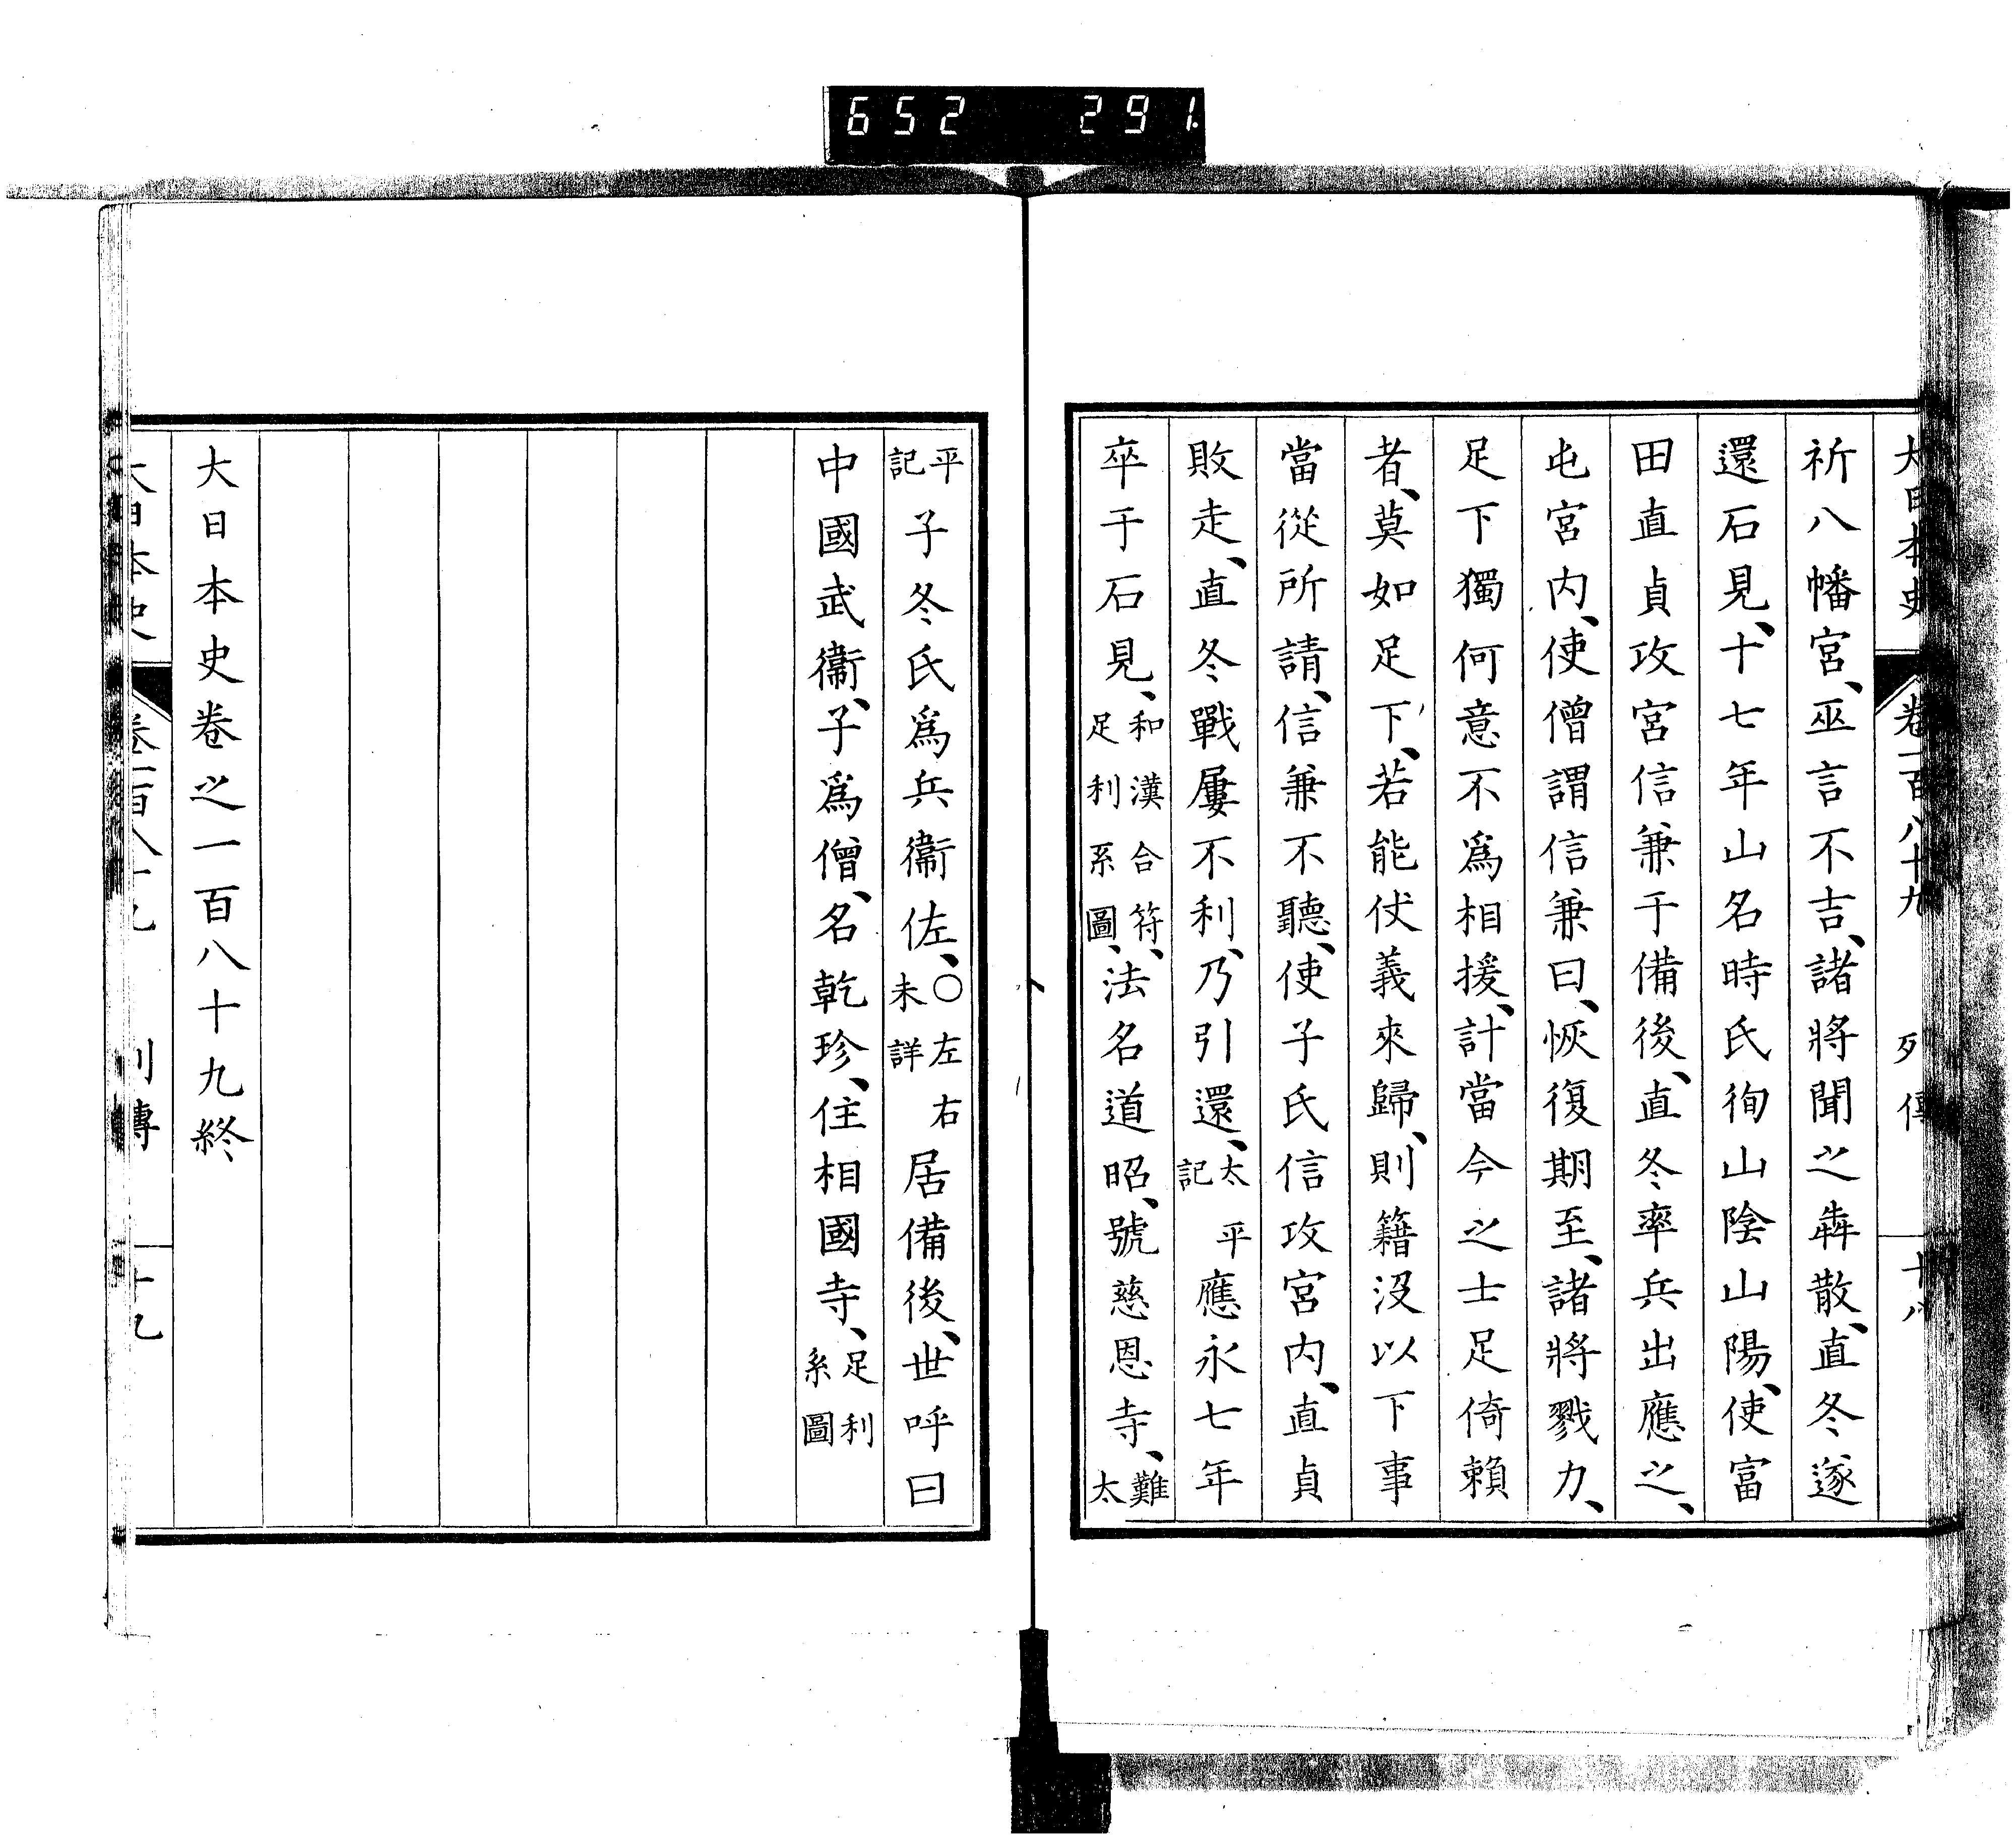 652 291
大日本史 卷一百八十九 列傳 十八
祈八幡宮、巫言不吉、諸將聞之犇散、直冬遂
還石見、十七年山名時氏徇山陰山陽、使富
田直貞攻宮信兼于備後、直冬率兵出應之、
屯宮内、使僧謂信兼曰、恢復期至、諸將戮力、
足下獨何意不爲相援、計當今之士足倚賴
者、莫如足下、若能伏義來歸、則籍沒以下事
當從所請、信兼不聽、使子氏信攻宮内、直貞
敗走、直冬戰屢不利、乃引還、太平記應永七年
卒于石見、和漢合符、足利系圖、法名道昭、號慈恩寺、難太
平記子冬氏爲兵衞佐、〇左右未詳居備後、世呼曰
中國武衞、子爲僧、名乾珍、住相國寺、足利系圖
大日本史卷之一百八十九終
大日本史 卷一百八十九 列傳 十九